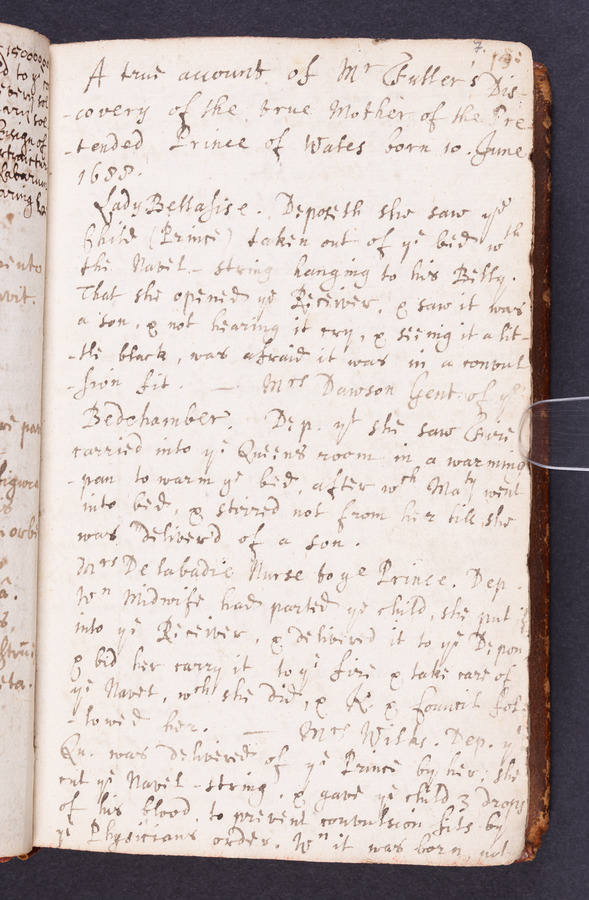 7.
A true account of Mr Fuller's Dis-
-covery of the true Mother of the Pre-
-tended Prince of Wales born 10. June
1688.
Lady Bellasise. Deposeth she saw ye
Child (Prince) taken out of ye bed wth
the Navel-string hanging to his Belly.
That she opened ye Receiver, & saw it was
a son, & not hearing it cry, & seeing it a lit-
-tle black, was afraid it was in a convul
-sion fit. — Mrs Dawson Gent. of ye
Bedchamber. Dep. yt she saw Fire
carried into ye Queens room in a warming
-pan to warm ye bed, after wch Maty went
into bed, & stirred not from her till she
was deliver'd of a son.
Mrs Delabadie Nurse to ye Prince. Dep.
Wn Midwife had parted ye child, she put it
into ye Receiver, & delivered it to ye Depon
& bid her carry it to ye fire & take care of
ye Navel, wch she did, & K. & Councit fol-
-lowed her. — Mrs Wilks. Dep. yt
Qu. was delivered of ye Prince by her; she
cut ye Navel-string, & gave ye child 3 drops
of his blood, to prevent convulsion fits by
ye Physicians order. Wn it was born, not